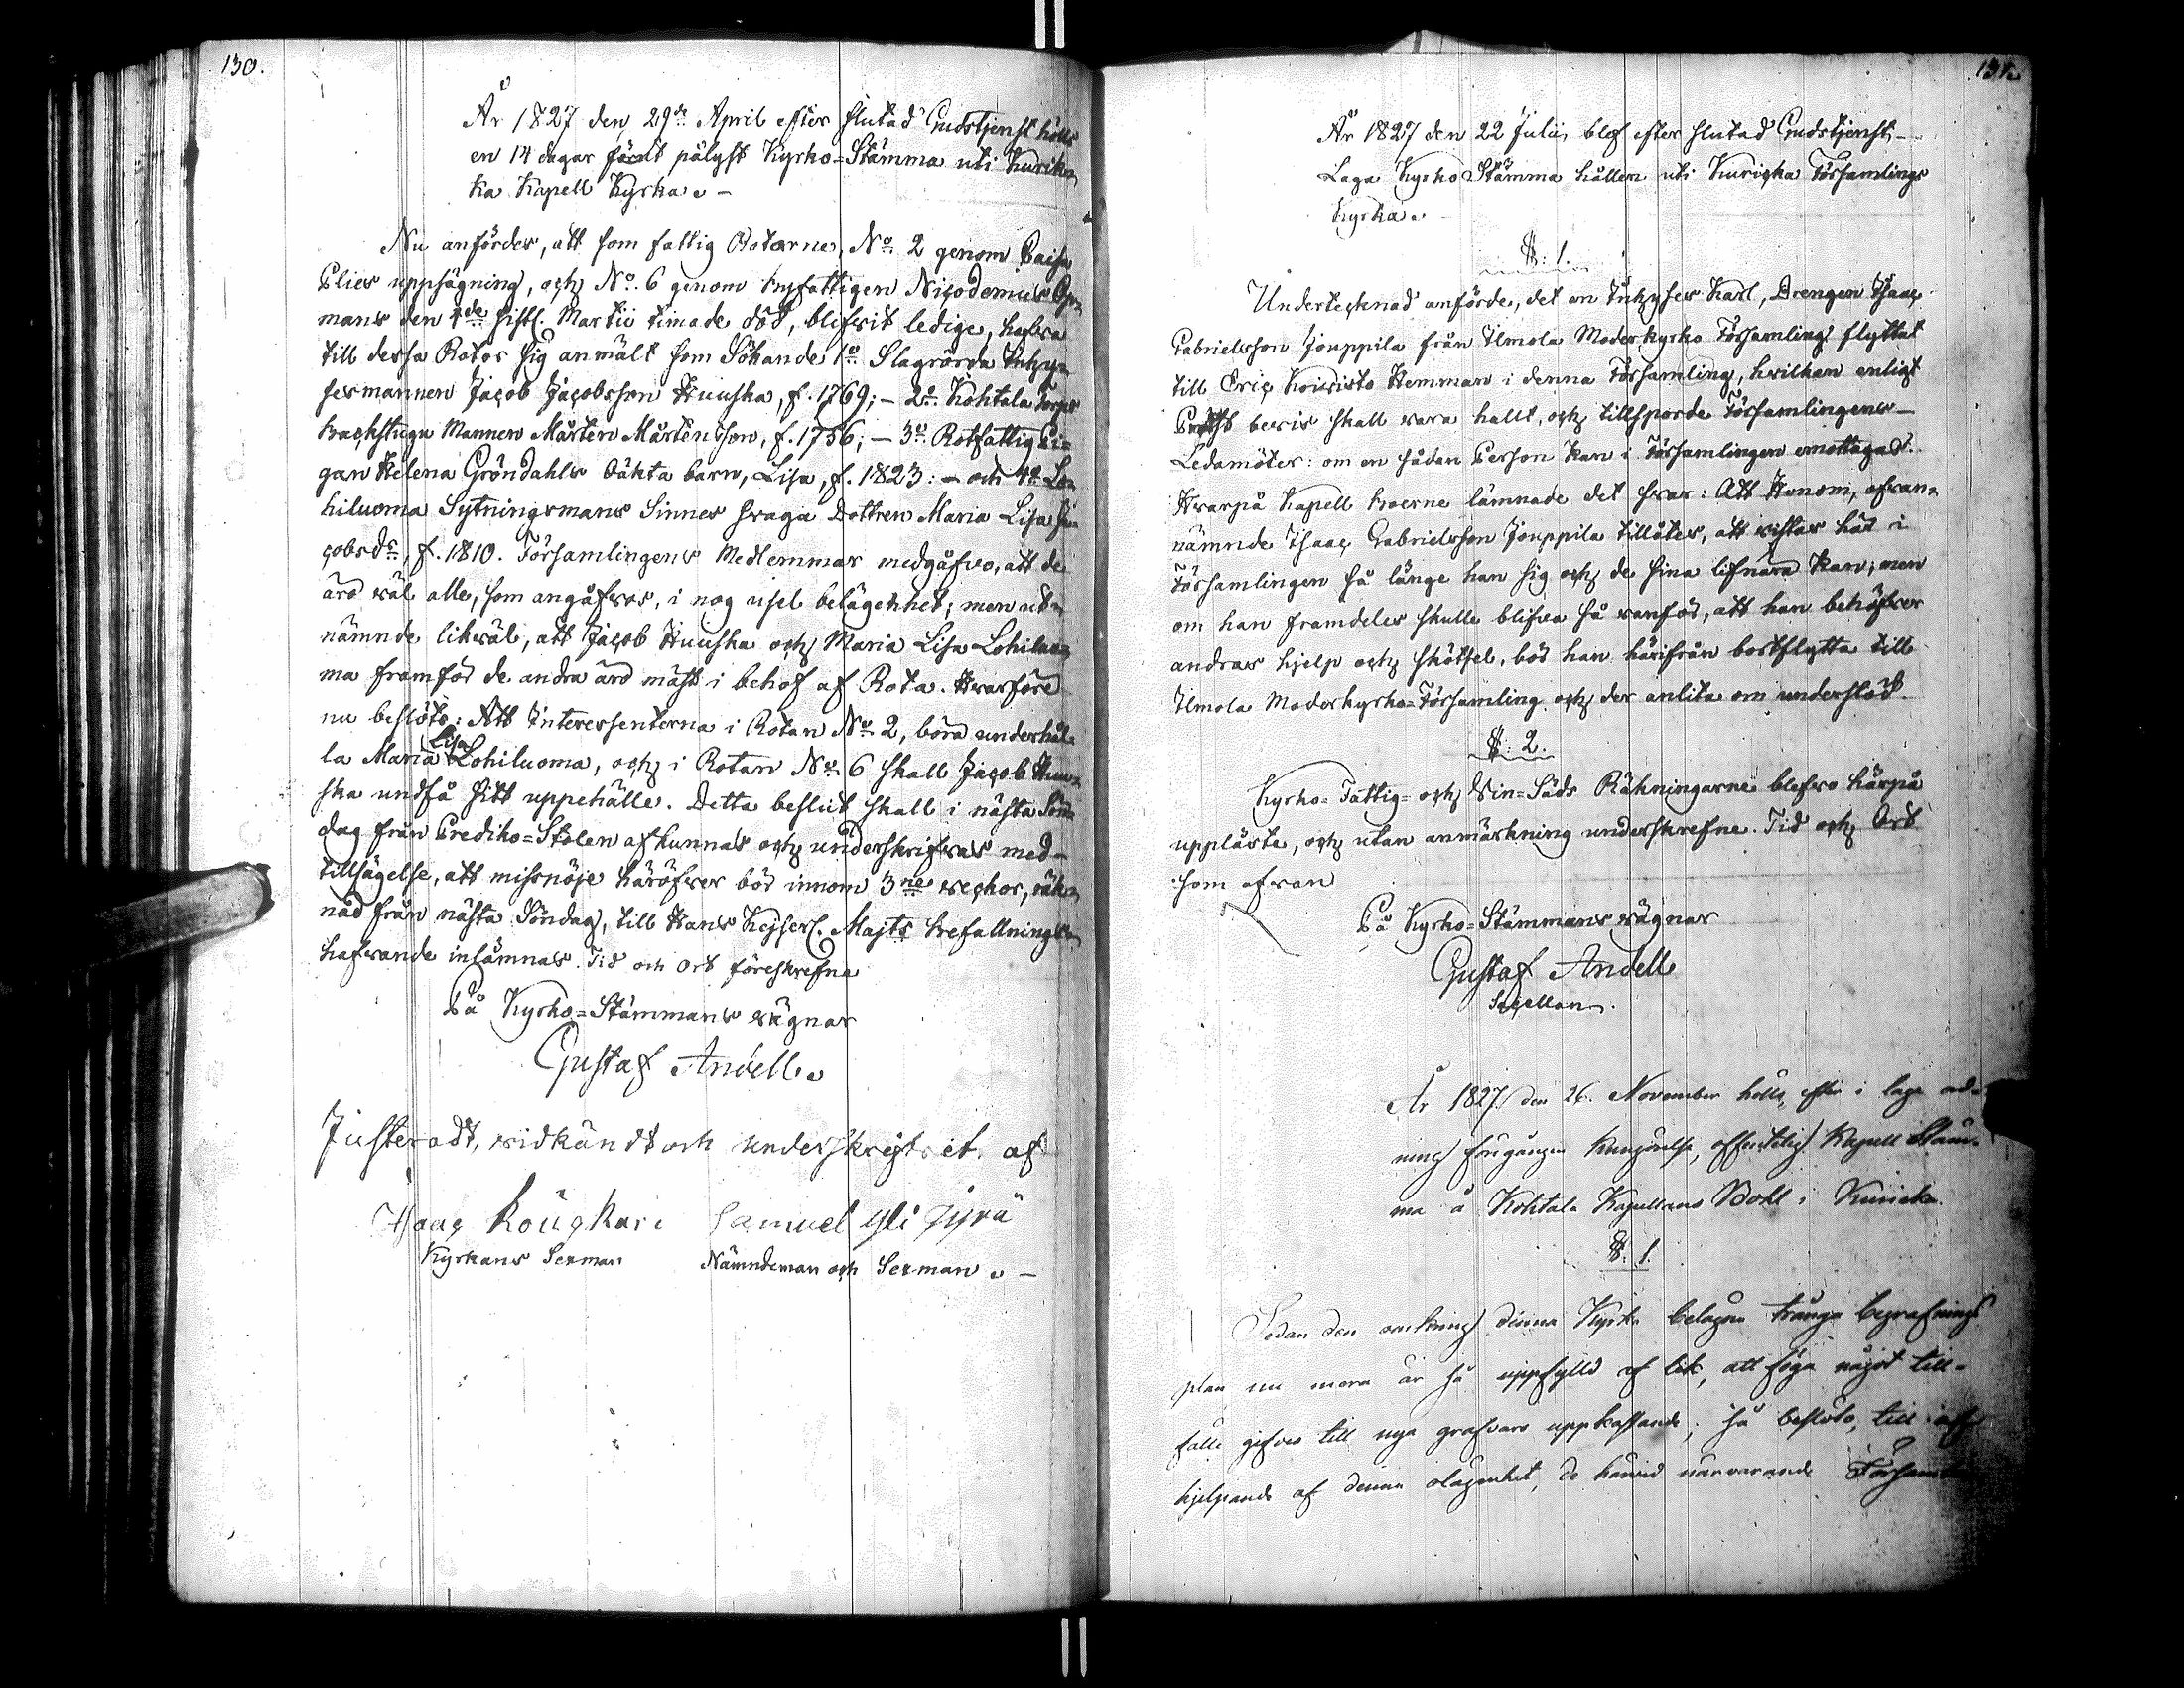 130.
År 1827 den 29de April efter slutad Gudstjenst hölls
en 14 dagar förut pålyst Kyrko=Stämma uti Kurik=
ka Kapell Kyrka. -
Nu anfördes, att som fattig Rotarne, No 2 genom
Elies uppsägning, och No. 6 genom Nicodemus
mans den sistl. Martii timade död, blifvit ledige, hafva
till dessa Rotor sig anmält som Sökande 1o Slagrörda Inhy=
sesmannen Jacob Jacobsson Huuska, f. 1769; - 2o. Kohtala torps
backstugu Mannen Mårten Mårtensson, f. 1756; - 3o Rotfattig Pi=
gan Helena Gröndahls oäkta barn, Lisa, f. 1823: - och 4o Lo=
hiluoma Sytningsmans Sinnes svaga Dottren Maria Lisa Ja=
cobsdr, f. 1810. Församlingens Medlemmar medgåfvo, att de
äro väl alle, som angåfvos, i nog usel belägenhet; men ut=
nämnde likväl, att Jacob Huuska och Maria Lisa Lohiluo=
ma framför de andra äro mäst i behof af Rota. Hvarföre
nu beslöts: Att Interessenterna i Rotan No 2, böra underhål=
la Maria Lisa Lohiluoma, och i Rotan No 6 skall Jacob Huu=
ska undfå sitt uppehälle. Detta beslut skall i nästa Sön=
dag från Prediko=Stolen afkunnas och underskrifvas med
tillsägelse, att missnöje häröfver bör innom 3ne veckor, räk=
nad från nästa Söndag, till Hans Kejserl. Majts Befallnings=
hafvande inlämnas. Tid och Ort föreskrefne
På Kyrko=Stämmans vägnar
Gustaf Andell.
Justeradt, vidkändt och underskrifvet af
Isaac Samuel Yli Jyrä
Kyrkans Sexman Nämndeman och Sexman. -
131.
År 1827 den 22 Julii, blef efter slutad Gudstjenst
Laga Kyrko Stämma hållen uti Kuricka Församlings
Kyrka.
§: 1.
Undertecknad anförde, det en Inhyses Karl, Drengen Isaac
Gabrielsson Jouppila från Ilmola Moderkyrko Församling flyttat
till Eric Koivisto Hemman i denna Församling, hvilken enligt
Prest bevis skall vara hallt, och tillsporde Församlingens
Ledamöter: om en sådan Person kan i Församlingen emottagas?
Hvarpå Kapell boerne lämnade det svar: Att Honom, ofvan=
nämnde Isaac Gabrielsson Jouppila tillåtes, att vistas här i
Församlingen så länge han sig och de sina lifnära kan; men
om han framdeles skulle blifva så vanför, att han behöfver
andras hjelp och skötsel, bör han härifrån bortflytta till
Ilmola Moderkyrko=Församling och der anlita om understöd.
§: 2.
Kyrko= Fattig= och Vin=Säds Räkningarne blefvo härpå
uppläste, och utan anmärkning underskrefne. Tid och Ort
som ofvan
På Kyrko=Stämmans vägnar
Gustaf Andell
Sacellan.
År 1827 den 26. November hölls, efter i laga ord=
ning föregången kungörelse, offentelig Kapell Stäm=
ma å Kohtala Kapellans Bohl i Kuricka.
§: 1.
Sedan den omkring denna Kyrka belägne trånga begrafnings
plan nu mera är så uppfylld af lik, att föga något till=
fälle gifves till nya grafvars uppkastande; så beslöto, till af
hjelpande af denna olägenhet, de härvid närvarande